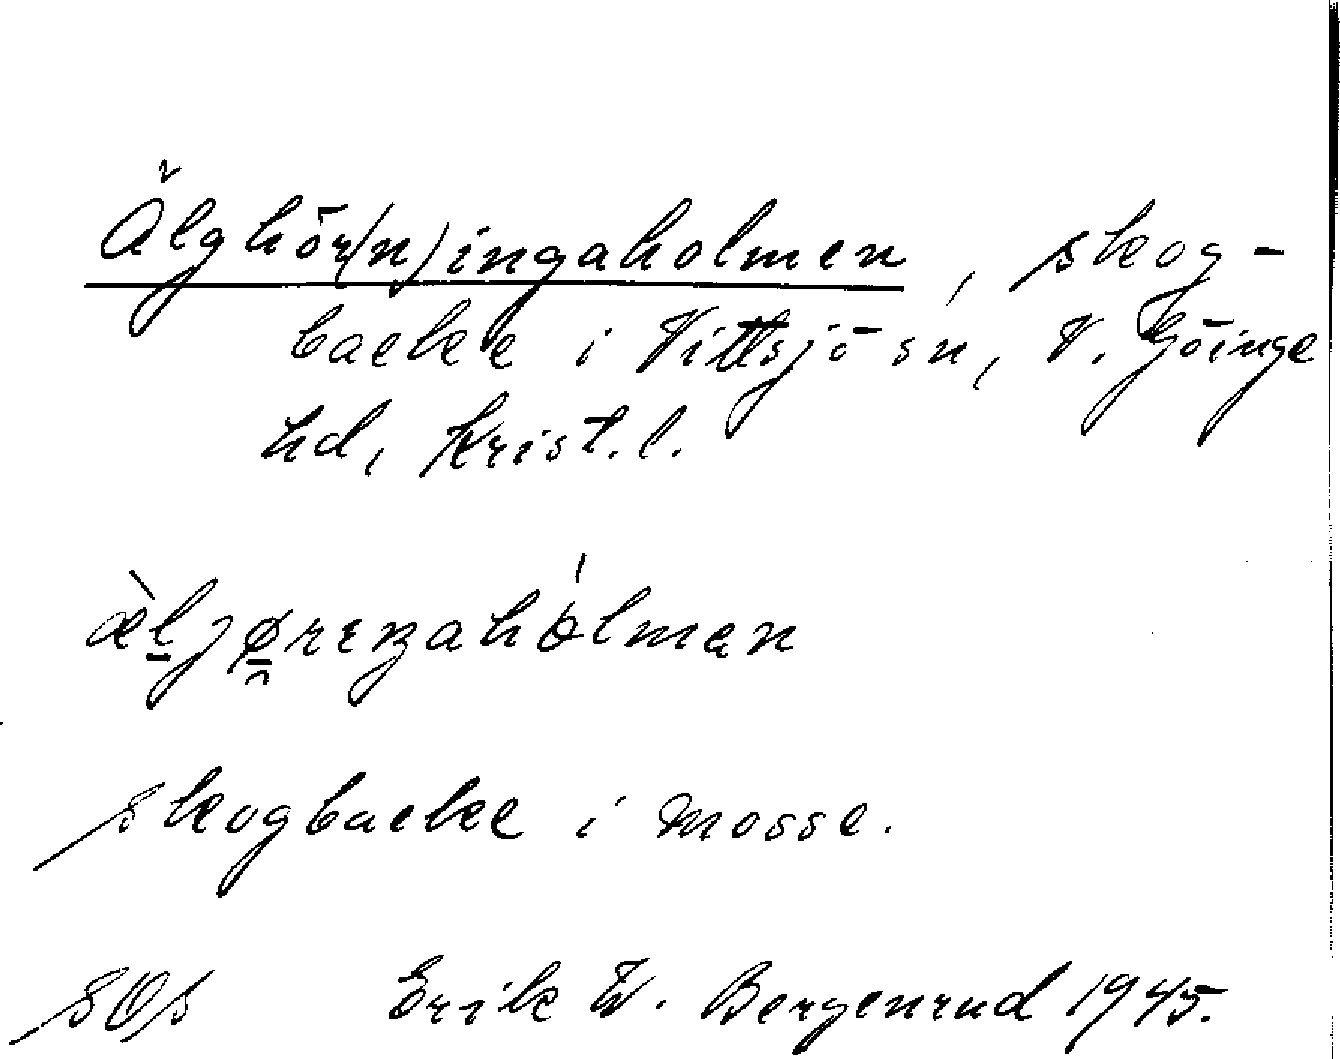 Älghör(n)ingaholmen, skog-
backe i Vittsjö sn, V. Göinge
hd, Krist. l.
skogbacke i mosse.
SOS Erik W. Bergenrud 1945.